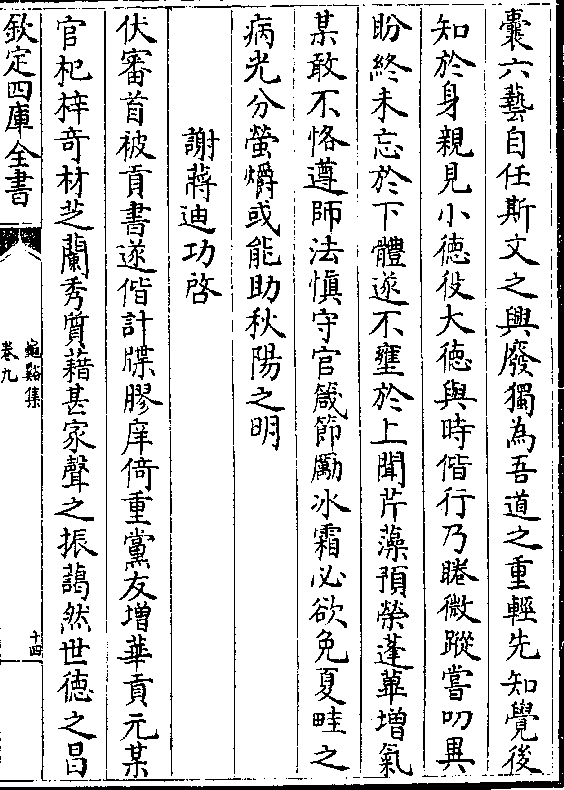 囊六藝自任斯文之興廢獨為吾道之重輕先知覺後
知於身親見小徳役大徳與時偕行乃睠微蹤嘗叨異
盼終未忘於下體遂不壅於上聞芹藻預榮蓬蓽增氣
某敢不恪遵師法慎守官箴節勵冰霜必欲免夏畦之
病光分螢爝或能助秋陽之明
謝蔣迪功啓
伏審首被貢書遂偕計牒膠庠倚重黨友增華貢元某
官杞梓竒材芝蘭秀質藉甚家聲之振藹然世徳之昌
欽定四庫全書
龜谿集
卷九
十四